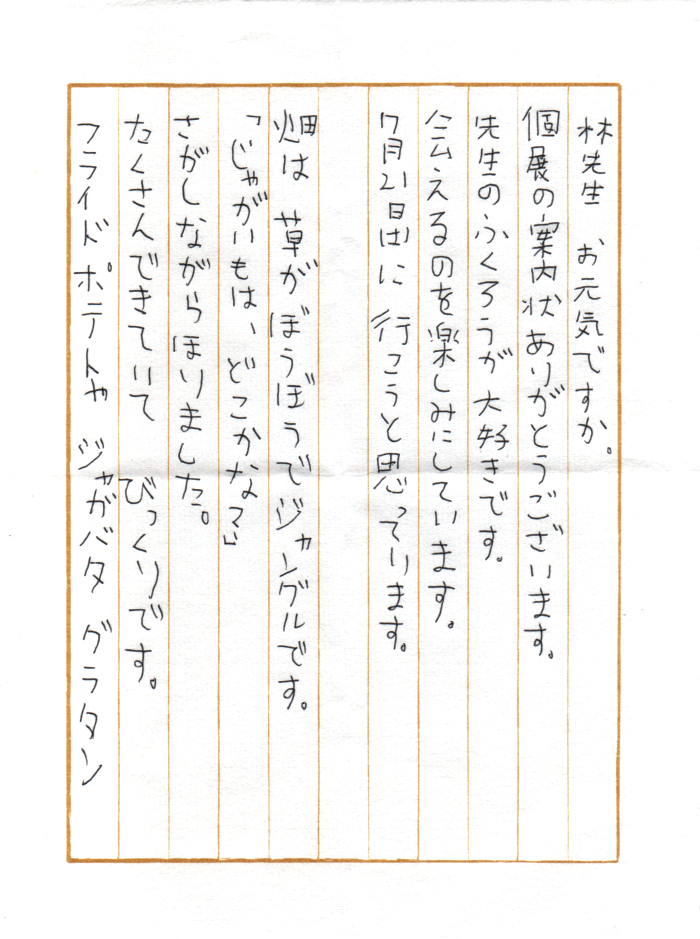 林先生　お元気ですか。
個展の案内状ありがとうございます。
先生のふくろうが大好きです。
会えるのを楽しみにしています。
7月21日(土)に 行こうと思っています。
畑は 草がぼうぼうでジャングルです。
「じゃがいもは、どこかな?」
さがしながらほりました。
たくさんできていて びっくりです。
フライドポテトや ジャガバタ グラタン